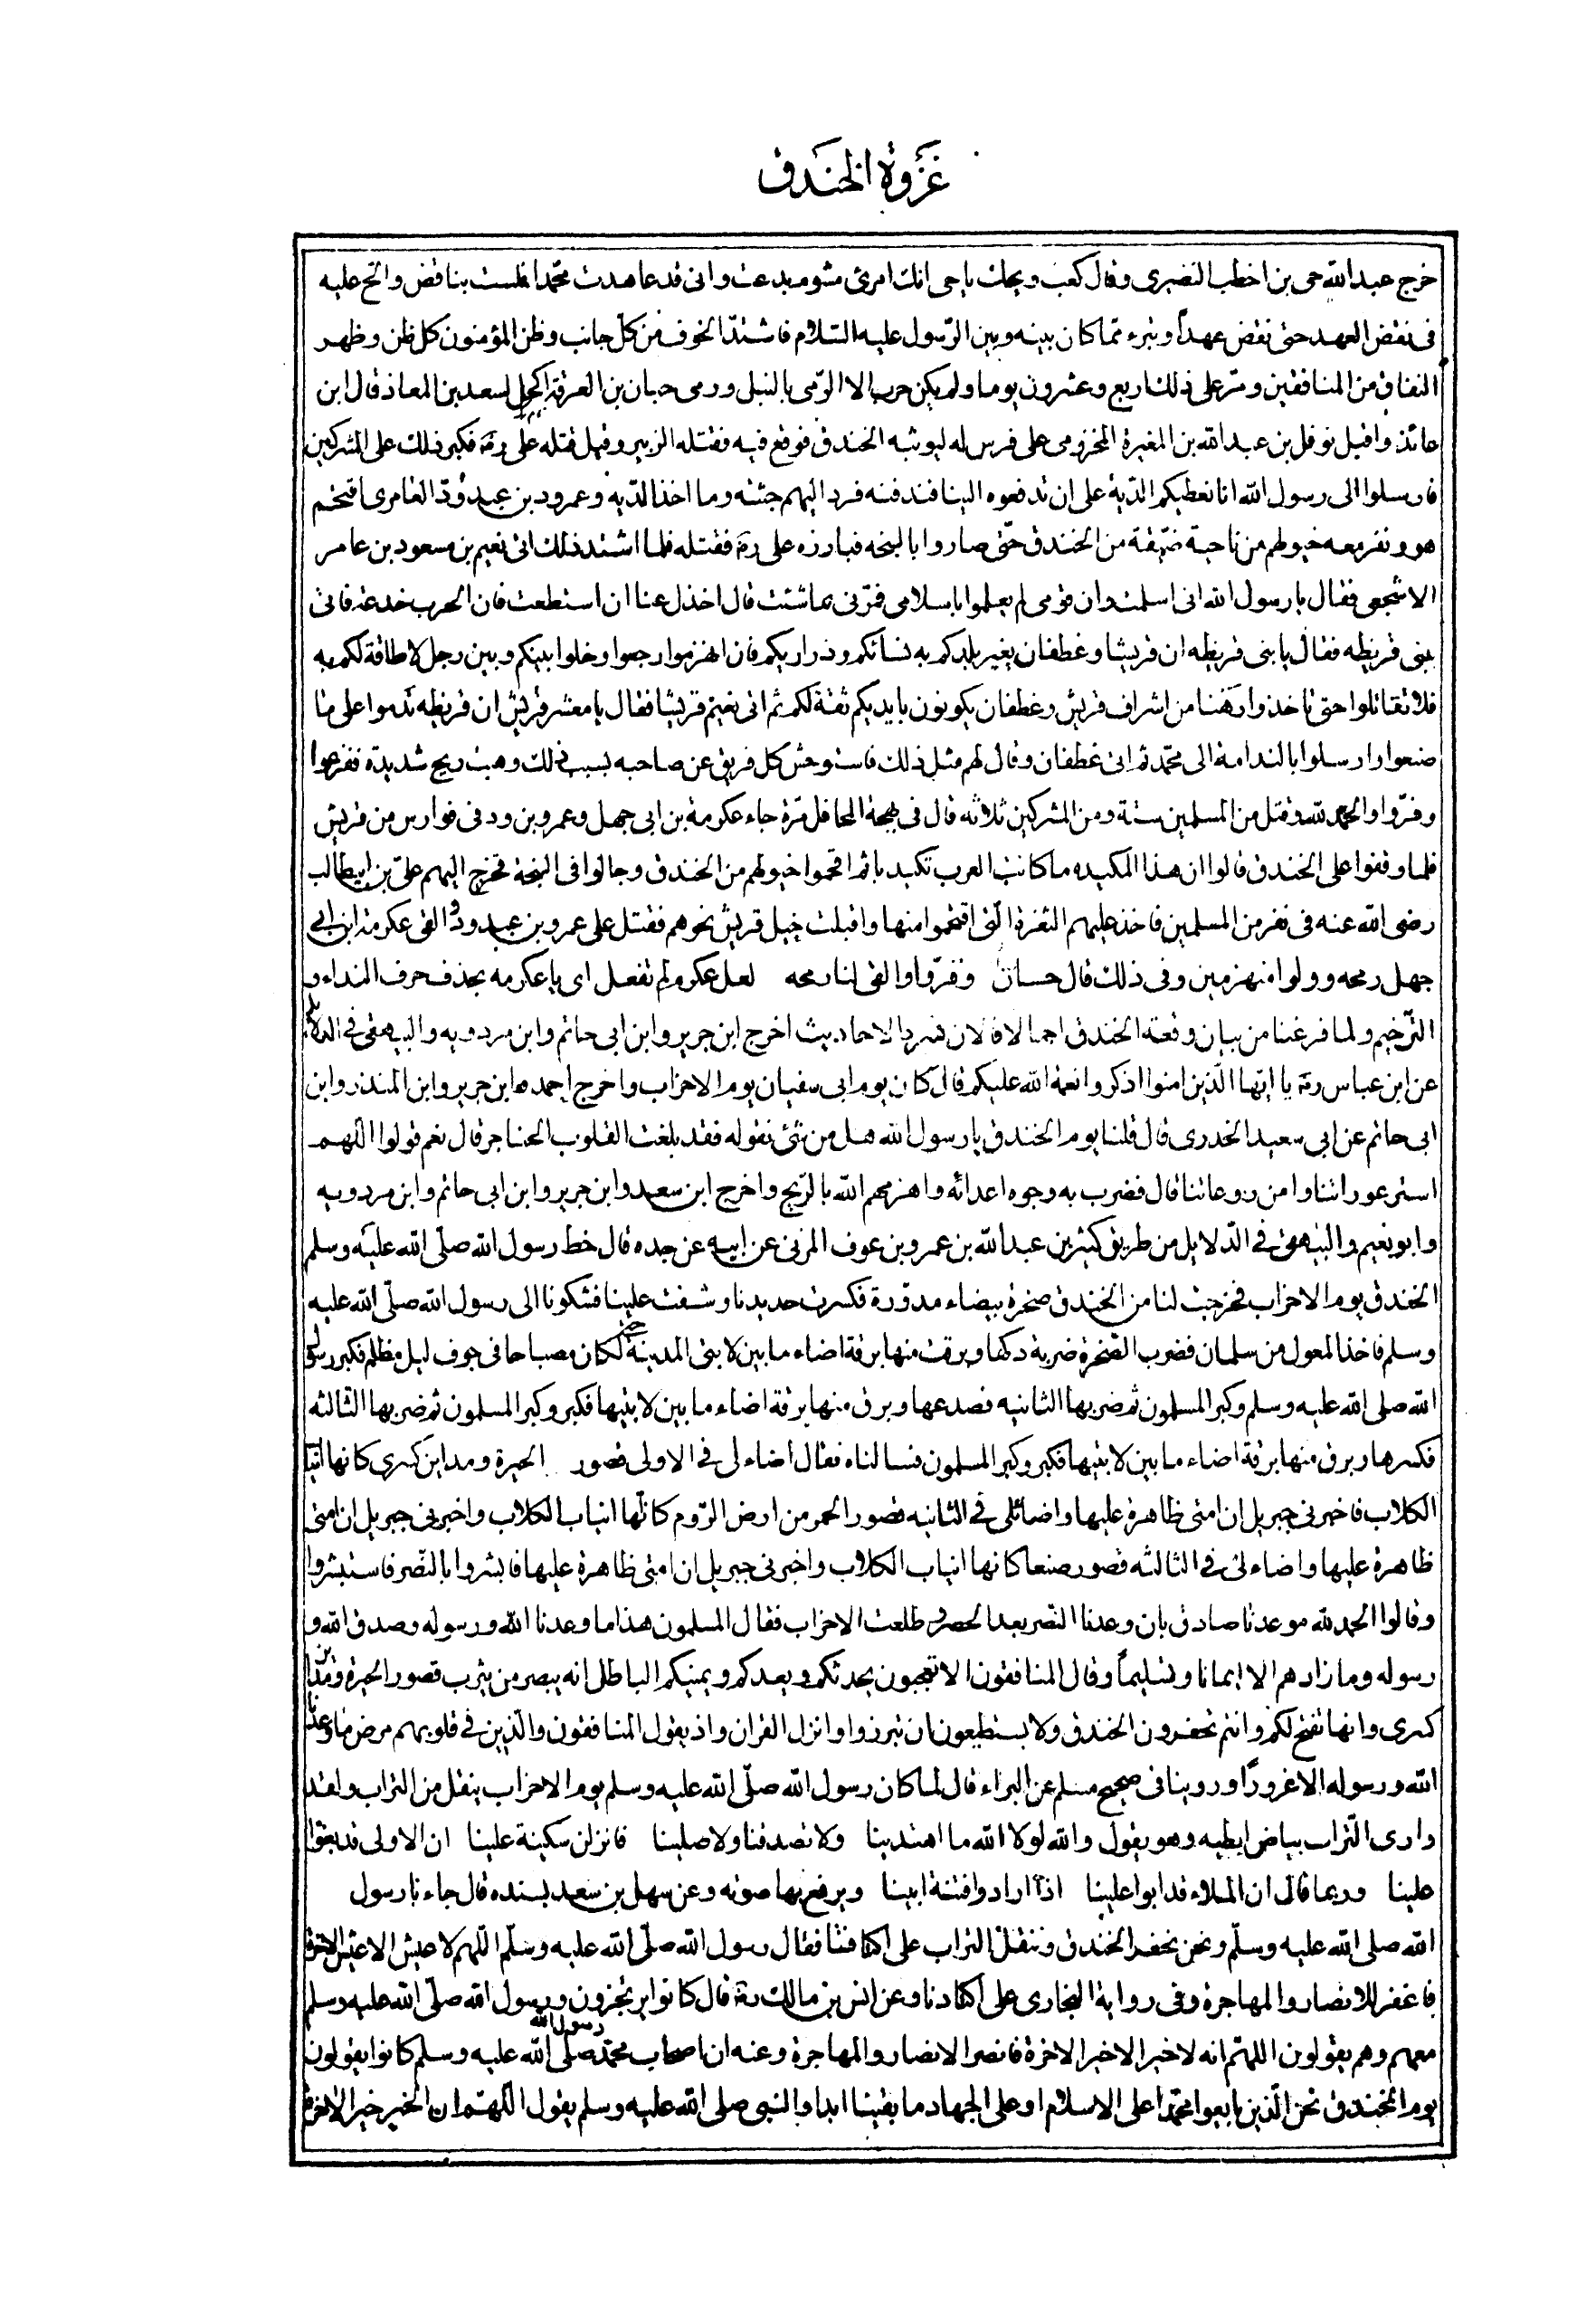 غزوة الخندق
خرج عبد الله حى بن اخطب النضيرى وقال كعب ويحك ياحى انك امرئ مشوم يدعت وانى قد عاهدت محمدا فلست بناقض والح عليه
فى نقض العهد حتى نقض عهداً وتبرء مما كان بينه وبين الرسول عليه السلام فاشتدّ الخوف من كلّ جانب وظن المؤمنون كل ظن وظهر
النفاق من المنافقين ومرّ على ذلك اربع وعشرون يوما ولم يكن حرب الا الرّمى بالنبل ورمى حبان بن العرقة اكحل لسعد بن المعاذ قال ابن
عائذ واقبل نوفل بن عبد الله بن المغيرة المخزومى على فرس له ليوثبه الخندق فوقع فيه فقتله الزبير وقيل قتله على رضه فكبر ذلك على المشركين
فارسلوا الى رسول الله انا نعطيكم الدّية على ان تدفعوه الينا فندفنه فرد اليهم جثته وما اخذ الدّيه وعمرود بن عبد وُدّ العامرى اقتحم
هو ونفر معه خيولهم من ناحية ضيّقة من الخندق حتّى صاروا بالسبخه فبارزه على رضه فقتله فلما اشتد ذلك اتى نعيم بن مسعود بن عامر
الاشجعى فقال يا رسول الله انى اسلمت وان قومى لم يعلموا باسلامى فمرّنى بما شئت قال اخذل عنا ان استطعت فان الحرب خدعة فاتى
بنى قريظه فقال يا بنى قريظه ان قريشا وغطفان بغير بلدكم به نسائكم وذراريكم فان انهزموا رجعوا وخلوا بينكم وبين رجل لا طاقة لكم به
فلا تقاتلوا حتى تاخذوا رهنا من اشراف قريش وغطفان يكونون بايديكم ثقة لكم ثم اتى نعيم قريشا فقال يا معشر قريش ان قريظه ندموا على ما
صنعوا وارسلوا بالندامة الى محمد ثم اتى غطفان وقال لهم مثل ذلك فاستوحش كل فريق عن صاحبه بسبب ذلك وهبت ريح شديدة ففزعوا
وفرّوا والحمد لله وقتل من المسلمين ستة ومن المشركين ثلاثه قال فى بهجة المحافل مرّة جاء عكرمة بن ابى جهل وعمرو بن ود فى فوارس من قريش
فلما وقفوا على الخندق قالوا ان هذا المكيده ما كانت العرب تكيد بها ثم اقحموا خيولهم من الخندق وجالوا فى السبخة فخرج اليهم علىّ بن ابيطالب
رضى الله عنه فى نفر من المسلمين فاخذ عليهم الثغرة الّتى اقتحموا منها واقبلت خيل قريش نحوهم فقتل على عمرو بن عبد ودّ والقى عكرمة ابن ابى
جهل رمحه وولوا منهزمين وفى ذلك قال حسان وفرّوا والقى لنا رمحه لعل عكرم لم تفعل اى يا عكرمه بحذف حرف النداء و
التّرخيم ولما فرغنا من بيان وقعة الخندق اجمالا فالان نسرد الاحاديث اخرج ابن جرير وابن ابى حاتم وابن مردويه والبيهقى فى الدلائل
عن ابن عباس رضه يا ايّها الّذين امنوا اذكروا نعمة الله عليكم قال كان يوم ابى سفيان يوم الاحزاب واخرج احمد وابن جرير وابن المنذر وابن
ابى حاتم عن ابى سعيد الخدرى قال قلنا يوم الخندق يا رسول الله هل من شئ نقوله فقد بلغت القلوب الحناجر قال نعم قولوا اللهم
استر عوراتنا وامن روعاتنا قال فضرب به وجوه اعدائه واهزمهم الله بالرّيح واخرج ابن سعد وابن جرير وابن ابى حاتم وابن مردويه
وابو نعيم والبيهقى فى الدّلايل من طريق كثير بن عبد الله بن عمرو بن عوف المزنى عن ابيه عن جده قال خط رسول الله صلّى الله عليه وسلم
الخندق يوم الاحزاب فخرجت لنا من الخندق صخرة بيضاء مدوّرة فكسرت حديدنا وشفت علينا فشكونا الى رسول الله صلّى الله عليه
وسلم فاخذ المعول من سلمان فضرب الصّخرة ضربة دكها وبرقت منها برقة اضاء ما بين لابتى المدينة حتى لكان مصباحا فى جوف ليل مظلم فكبر رسول
الله صلى الله عليه وسلم وكبر المسلمون ثم ضربها الثانيه فصدعها وبرق منها برقة اضاء ما بين لابتيها فكبر وكبر المسلمون ثم ضربها الثالثه
فكسرها وبرق منها برقة اضاء ما بين لابتيها فكبر وكبر المسلمون فسالناه فقال اضاء لى فى الاولى قصور الحيرة ومداين كسرى كانها انياب
الكلاب فاخبرنى جبريل ان امتى ظاهرة عليها واضائلى فى الثانيه قصور الحمر من ارض الرّوم كانّها انياب الكلاب واخبرنى جبريل ان امتى
ظاهرة عليها واضاء لى فى الثالثه قصور صنعا كانها انياب الكلاب واخبرنى جبريل ان امتى ظاهرة عليها فابشروا بالنّصر فاستبشروا
وقالوا الحمد لله موعدنا صادق بان وعدنا النصر بعد الحصر وطلعت الاحزاب فقال المسلمون هذا ما وعدنا الله ورسوله وصدق الله و
رسوله وما زادهم الا ايمانا وتسليماً وقال المنافقون الا تعجبون يحدثكم ويعدكم ويمنيكم الباطل انه يبصر من يثرب قصور الحيرة ومداين
كسرى وانها تفتح لكم وانتم تحفرون الخندق ولا يستطيعون ان تبرزوا وانزل القران واذ يقول المنافقون والّذين فى قلوبهم مرض ما وعدنا
الله ورسوله الا غروراً وروينا فى صحيح مسلم عن البراء قال لما كان رسول الله صلّى الله عليه وسلم يوم الاحزاب ينقل من التراب ولقد
وارى التّراب بياض ابطيه وهو يقول والله لولا الله ما اهتدينا ولا تصدقنا ولا صلينا فانزلن سكينة علينا ان الاولى قد بغوا
علينا وربما قال ان الملاء قد ابوا علينا اذا ارادوا فتنة ابينا ويرفع بها صوته وعن سهل بن سعد بسنده قال جاءنا رسول
الله صلى الله عليه وسلّم ونحن نحفر الخندق وننقل التراب على اكتافنا فقال رسول الله صلّى الله عليه وسلّم اللّهم لا عيش الا عيش الاخرة
فاغفر للانصار والمهاجرة وفى رواية البخارى على اكتادنا وعن انس بن مالك رضه قال كانوا يرتجزون ورسول الله صلّى الله عليه وسلم
معهم وهم يقولون اللهم انه لا خير الا خير الاخرة فانصر الانصار والمهاجرة وعنه ان اصحاب محمد رسول الله صلّى الله عليه وسلم كانوا يقولون
يوم الخندق نحن الّذين بايعوا محمّدا على الاسلام او على الجهاد ما بقينا ابدا والنبى صلى الله عليه وسلم يقول اللّهمّ ان الخير خير الاخرة